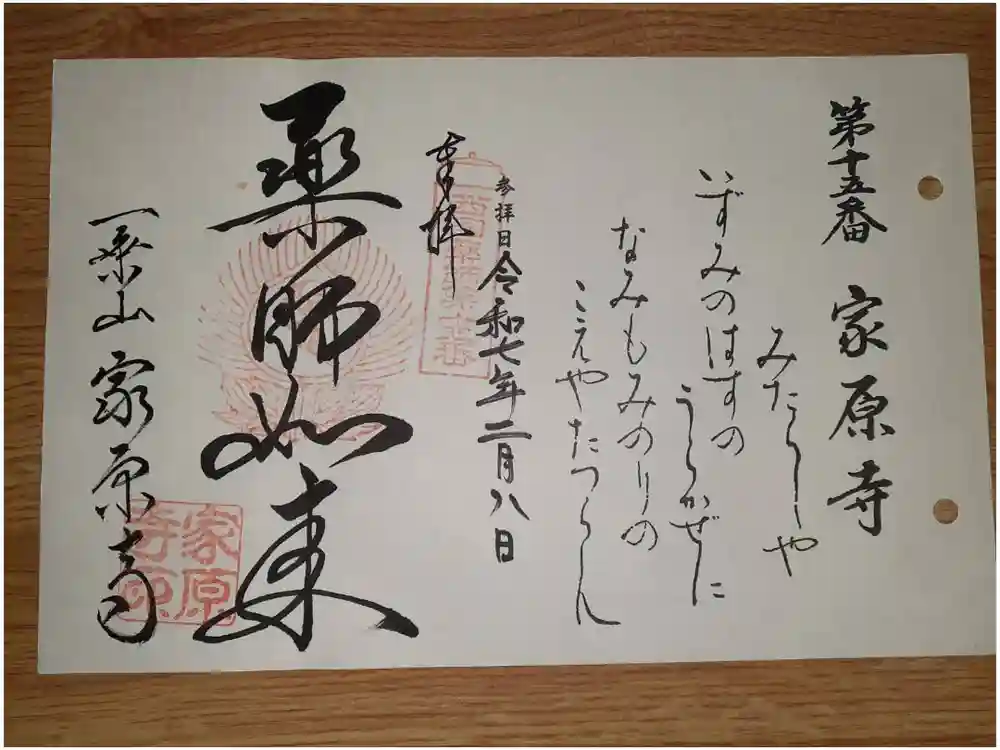 第十五番 家原寺
みたらしや
いずみのはすの
うらかぜに
なみもみのりの
こえやたつらん
参拝日令和七年二月八日
奉拝
薬師如来
一乗山 家原寺
家原
寺印